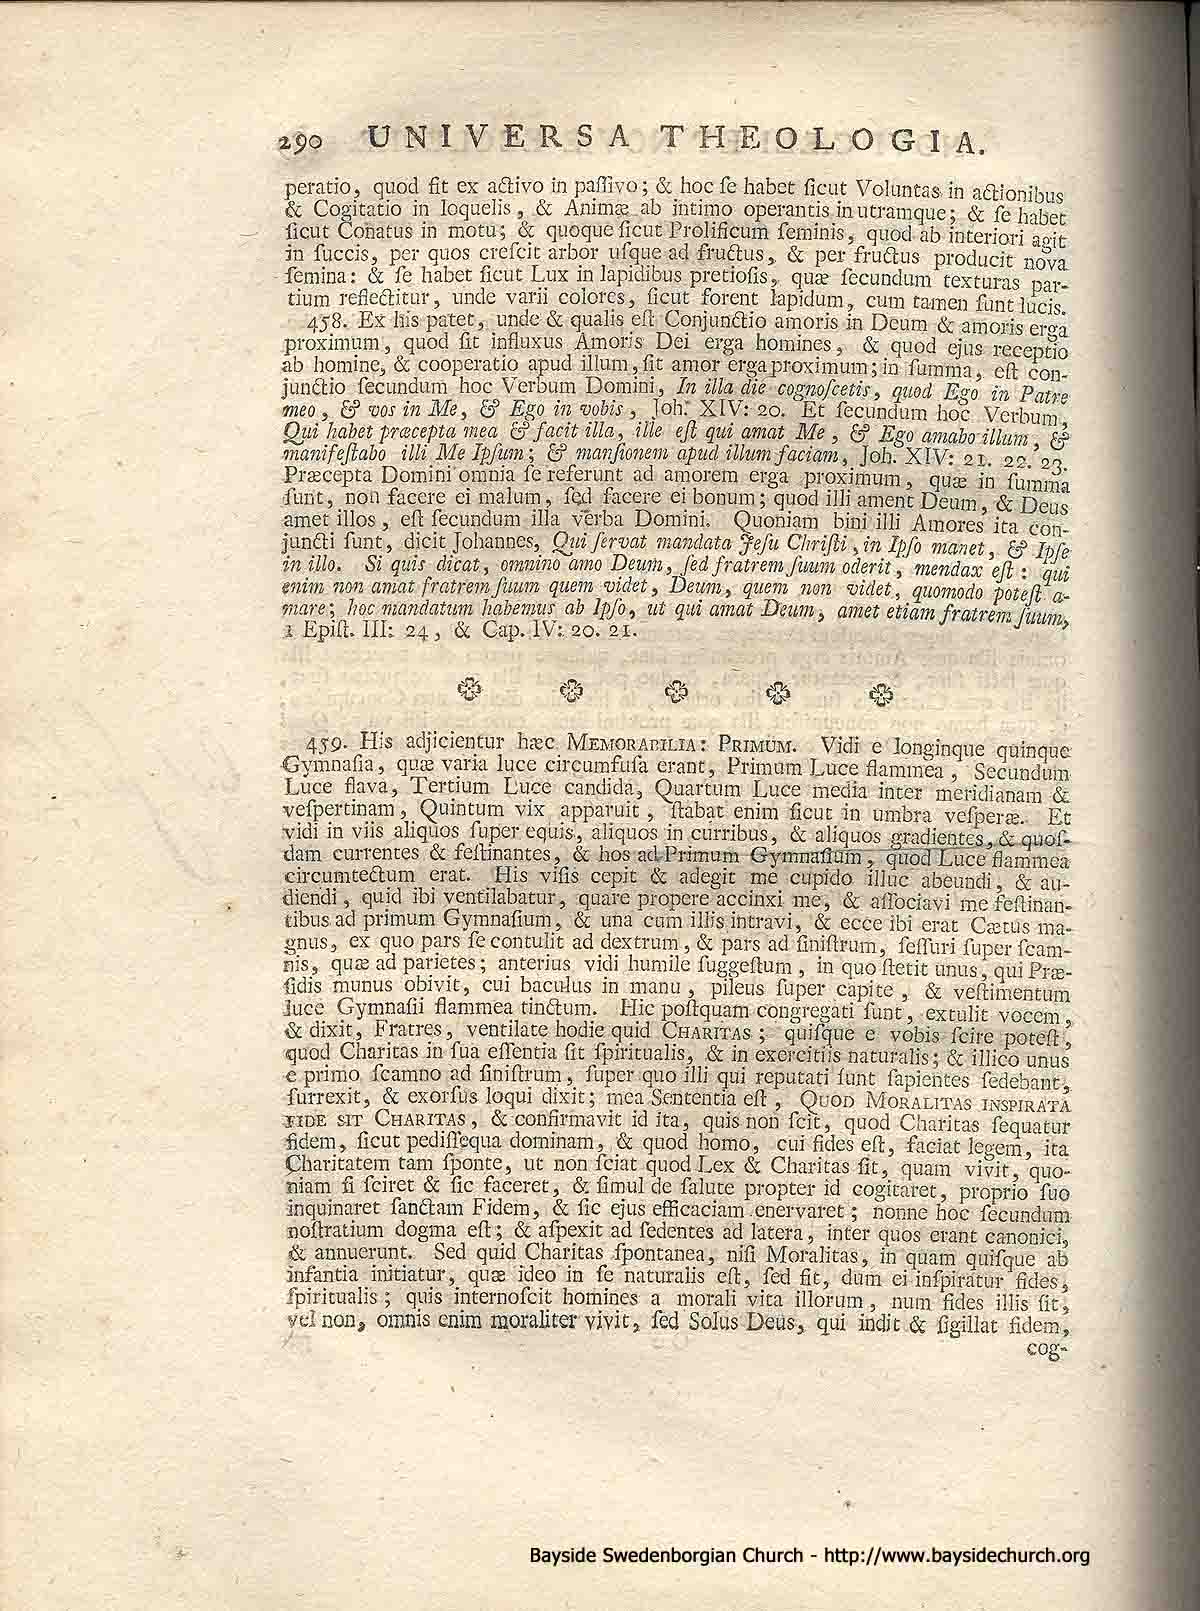 290 UNIVERSA THEOLOGIA.
peratio, quod fit ex activo in paſſivo; & hoc ſe habet ſicut Voluntas in actionibus
& Cogitatio in loquelis, & Animæ ab intimo operantis in utramque; & ſe habet
ſicut Conatus in motu; & quoque ſicut Prolificum ſeminis, quod ab interiori agit
in ſuccis, per quos creſcit arbor uſque ad fructus, & per fructus producit nova
ſemina: & ſe habet ſicut Lux in lapidibus pretioſis, quæ ſecundum texturas par-
tium reflectitur, unde varii colores, ſicut forent lapidum, cum tamen ſunt lucis.
458. Ex his patet, unde & qualis eſt Conjunctio amoris in Deum & amoris erga
proximum, quod ſit influxus Amoris Dei erga homines, & quod ejus receptio
ab homine, & cooperatio apud illum, ſit amor erga proximum; in ſumma, eſt con-
junctio ſecundum hoc Verbum Domini, In illa die cognoſcetis, quod Ego in Patre
meo, & vos in Me, & Ego in vobis, Joh. XIV: 20. Et ſecundum hoc Verbum,
Qui habet præcepta mea & facit illa, ille eſt qui amat Me, & Ego amabo illum, &
manifeſtabo illi Me Ipſum; & manſionem apud illum faciam, Joh. XIV: 21. 22. 23.
Præcepta Domini omnia ſe referunt ad amorem erga proximum, quæ in ſumma
ſunt, non facere ei malum, ſed facere ei bonum; quod illi ament Deum, & Deus
amet illos, eſt ſecundum illa verba Domini. Quoniam bini illi Amores ita con-
juncti ſunt, dicit Johannes, Qui ſervat mandata Jeſu Chriſti, in Ipſo manet, & Ipſe
in illo. Si quis dicat, omnino amo Deum, ſed fratrem ſuum oderit, mendax eſt: qui
enim non amat fratrem ſuum quem videt, Deum, quem non videt, quomodo poteſt a-
mare; hoc mandatum habemus ab Ipſo, ut qui amat Deum, amet etiam fratrem ſuum,
1 Epiſt. III: 24, & Cap. IV: 20. 21.
459. His adjicientur hæc MEMORABILIA: PRIMUM. Vidi e longinque quinque
Gymnaſia, quæ varia luce circumfuſa erant, Primum Luce flammea, Secundum
Luce flava, Tertium Luce candida, Quartum Luce media inter meridianam &
veſpertinam, Quintum vix apparuit, ſtabat enim ſicut in umbra veſperæ. Et
vidi in viis aliquos ſuper equis, aliquos in curribus, & aliquos gradientes, & quoſ-
dam currentes & feſtinantes, & hos ad Primum Gymnaſium, quod Luce flammea
circumtectum erat. His viſis cepit & adegit me cupido illuc abeundi, & au-
diendi, quid ibi ventilabatur, quare propere accinxi me, & aſſociavi me feſtinan-
tibus ad primum Gymnaſium, & una cum illis intravi, & ecce ibi erat Cætus ma-
gnus, ex quo pars ſe contulit ad dextrum, & pars ad ſiniſtrum, ſeſſuri ſuper ſcam-
nis, quæ ad parietes; anterius vidi humile ſuggeſtum, in quo ſtetit unus, qui Præ-
ſidis munus obivit, cui baculus in manu, pileus ſuper capite, & veſtimentum
luce Gymnaſii flammea tinctum. Hic poſtquam congregati ſunt, extulit vocem,
& dixit, Fratres, ventilate hodie quid CHARITAS; quiſque e vobis ſcire poteſt,
quod Charitas in ſua eſſentia ſit ſpiritualis, & in exercitiis naturalis; & illico unus
e primo ſcamno ad ſiniſtrum, ſuper quo illi qui reputati ſunt ſapientes ſedebant,
ſurrexit, & exorſus loqui dixit; mea Sententia eſt, QUOD MORALITAS INSPIRATA
FIDE SIT CHARITAS, & confirmavit id ita, quis non ſcit, quod Charitas ſequatur
fidem, ſicut pediſſequa dominam, & quod homo, cui fides eſt, faciat legem, ita
Charitatem tam ſponte, ut non ſciat quod Lex & Charitas ſit, quam vivit, quo-
niam ſi ſciret & ſic faceret, & ſimul de ſalute propter id cogitaret, proprio ſuo
inquinaret ſanctam Fidem, & ſic ejus efficaciam enervaret; nonne hoc ſecundum
noſtratium dogma eſt; & aſpexit ad ſedentes ad latera, inter quos erant canonici,
& annuerunt. Sed quid Charitas ſpontanea, niſi Moralitas, in quam quiſque ab
infantia initiatur, quæ ideo in ſe naturalis eſt, ſed fit, dum ei inſpiratur fides,
ſpiritualis; quis internoſcit homines a morali vita illorum, num fides illis ſit,
vel non, omnis enim moraliter vivit, ſed Solus Deus, qui indit & ſigillat fidem,
cog-
Bayside Swedenborgian Church - http://www.baysidechurch.org